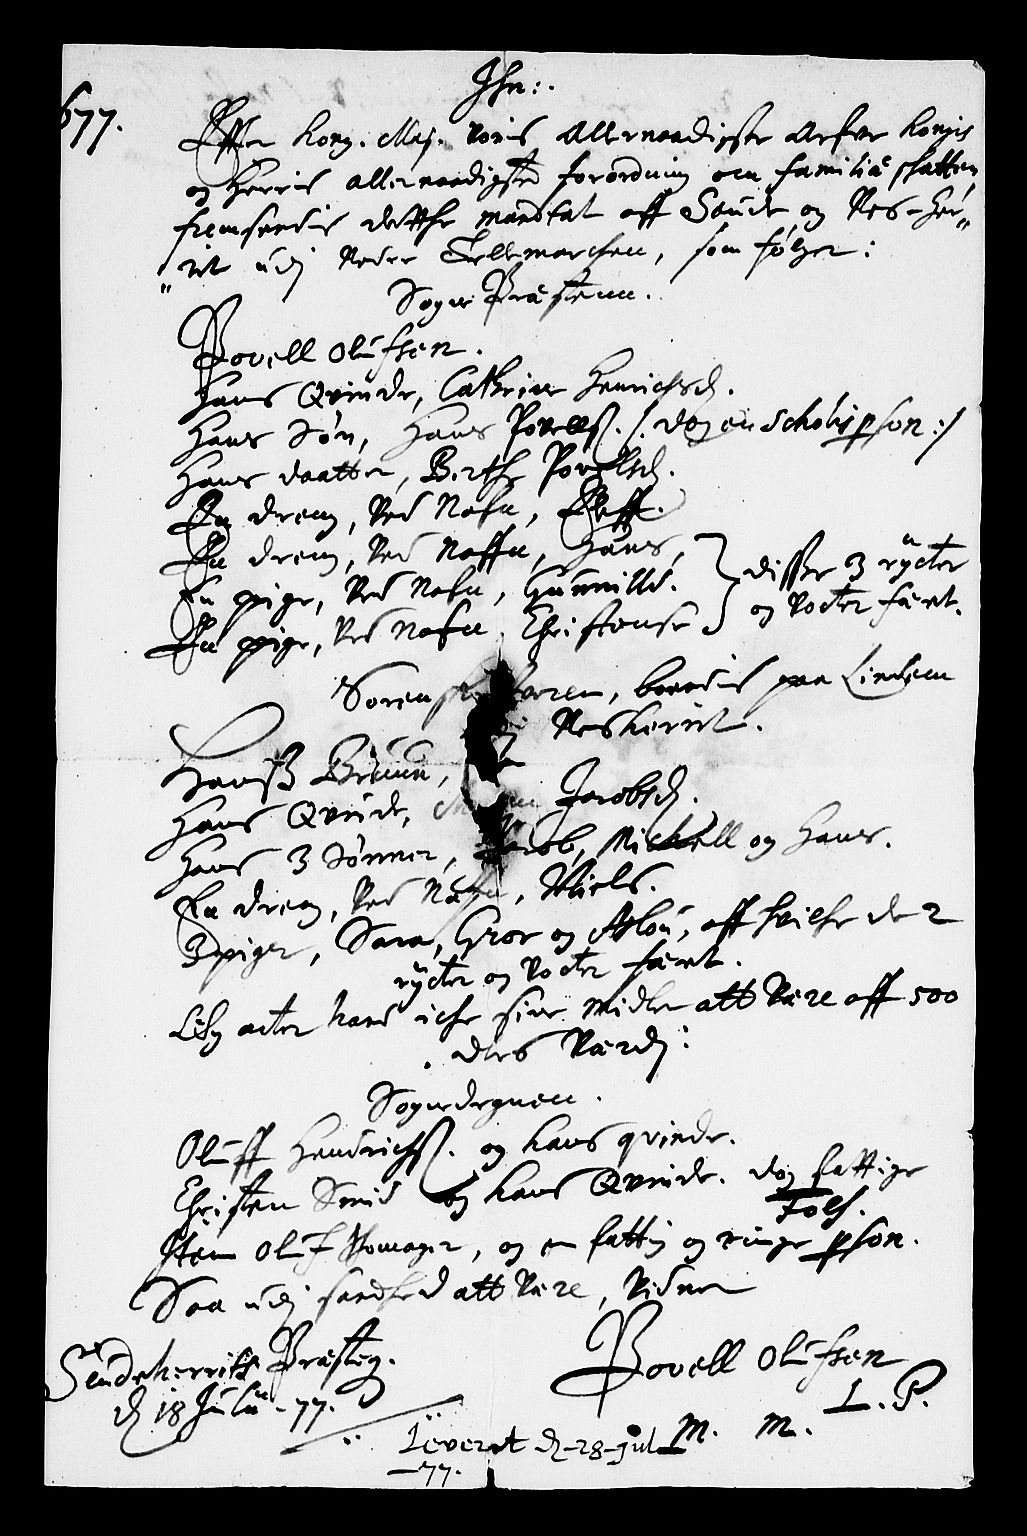 Jhn:.
677.
Effter Kong. Maj. Voris Allernaadigste Arfve Kongis
og Herris allernaadigste forordning om familiæ skatten
fremsendis dette mandtal aff Saude og Nes-Her-
rit udj Nedre Tellemarchen, som følger:
Sogne Præstenn.
Povell Olufsen.
Hans Qvinde, Cathrine Henrichsd.
Hans Søn, Hans Povells. /: dog en Scholis pson :/
Hans daatter, Birthe Povelsd.
En dreng, ved Nafn, Eleff.
En dreng, ved Naffn, Hans,
En pige, ved Nafn, Gunnilld.
En pige, ved Nafn, Christense
disse 3 rycter
og Vocter fæet.
Sorenskrifveren, boendis paa Lindem
Nesherrit.
Hanss Bruun,
Hans Qvinde, Jacobsd.
Hans 3 Sønner, Jacob, Michell og Hans.
En dreng, ved Nafn, Niels.
3 piger, Sara, Groe og Aslou, aff hvilche de 2
rycter og Vocter fæet.
Lihg acter hand iche sine Midler att være aff 500
dlrs Værdj:
Sognedegnen.
Oluff Hendrichss. og hans qvinde.
Christen Smid og hans Qvinde. dog fattige
Folch.
Item Oluf Skomager, og en fattig og ringe pson.
Saa udj sandhed att være, Vidner
Povell Olufsen
Saudeherrits Præsteg.
d 18 Julii -77.
L. P.
M. M.
Leveret d-28-Jul
-77.